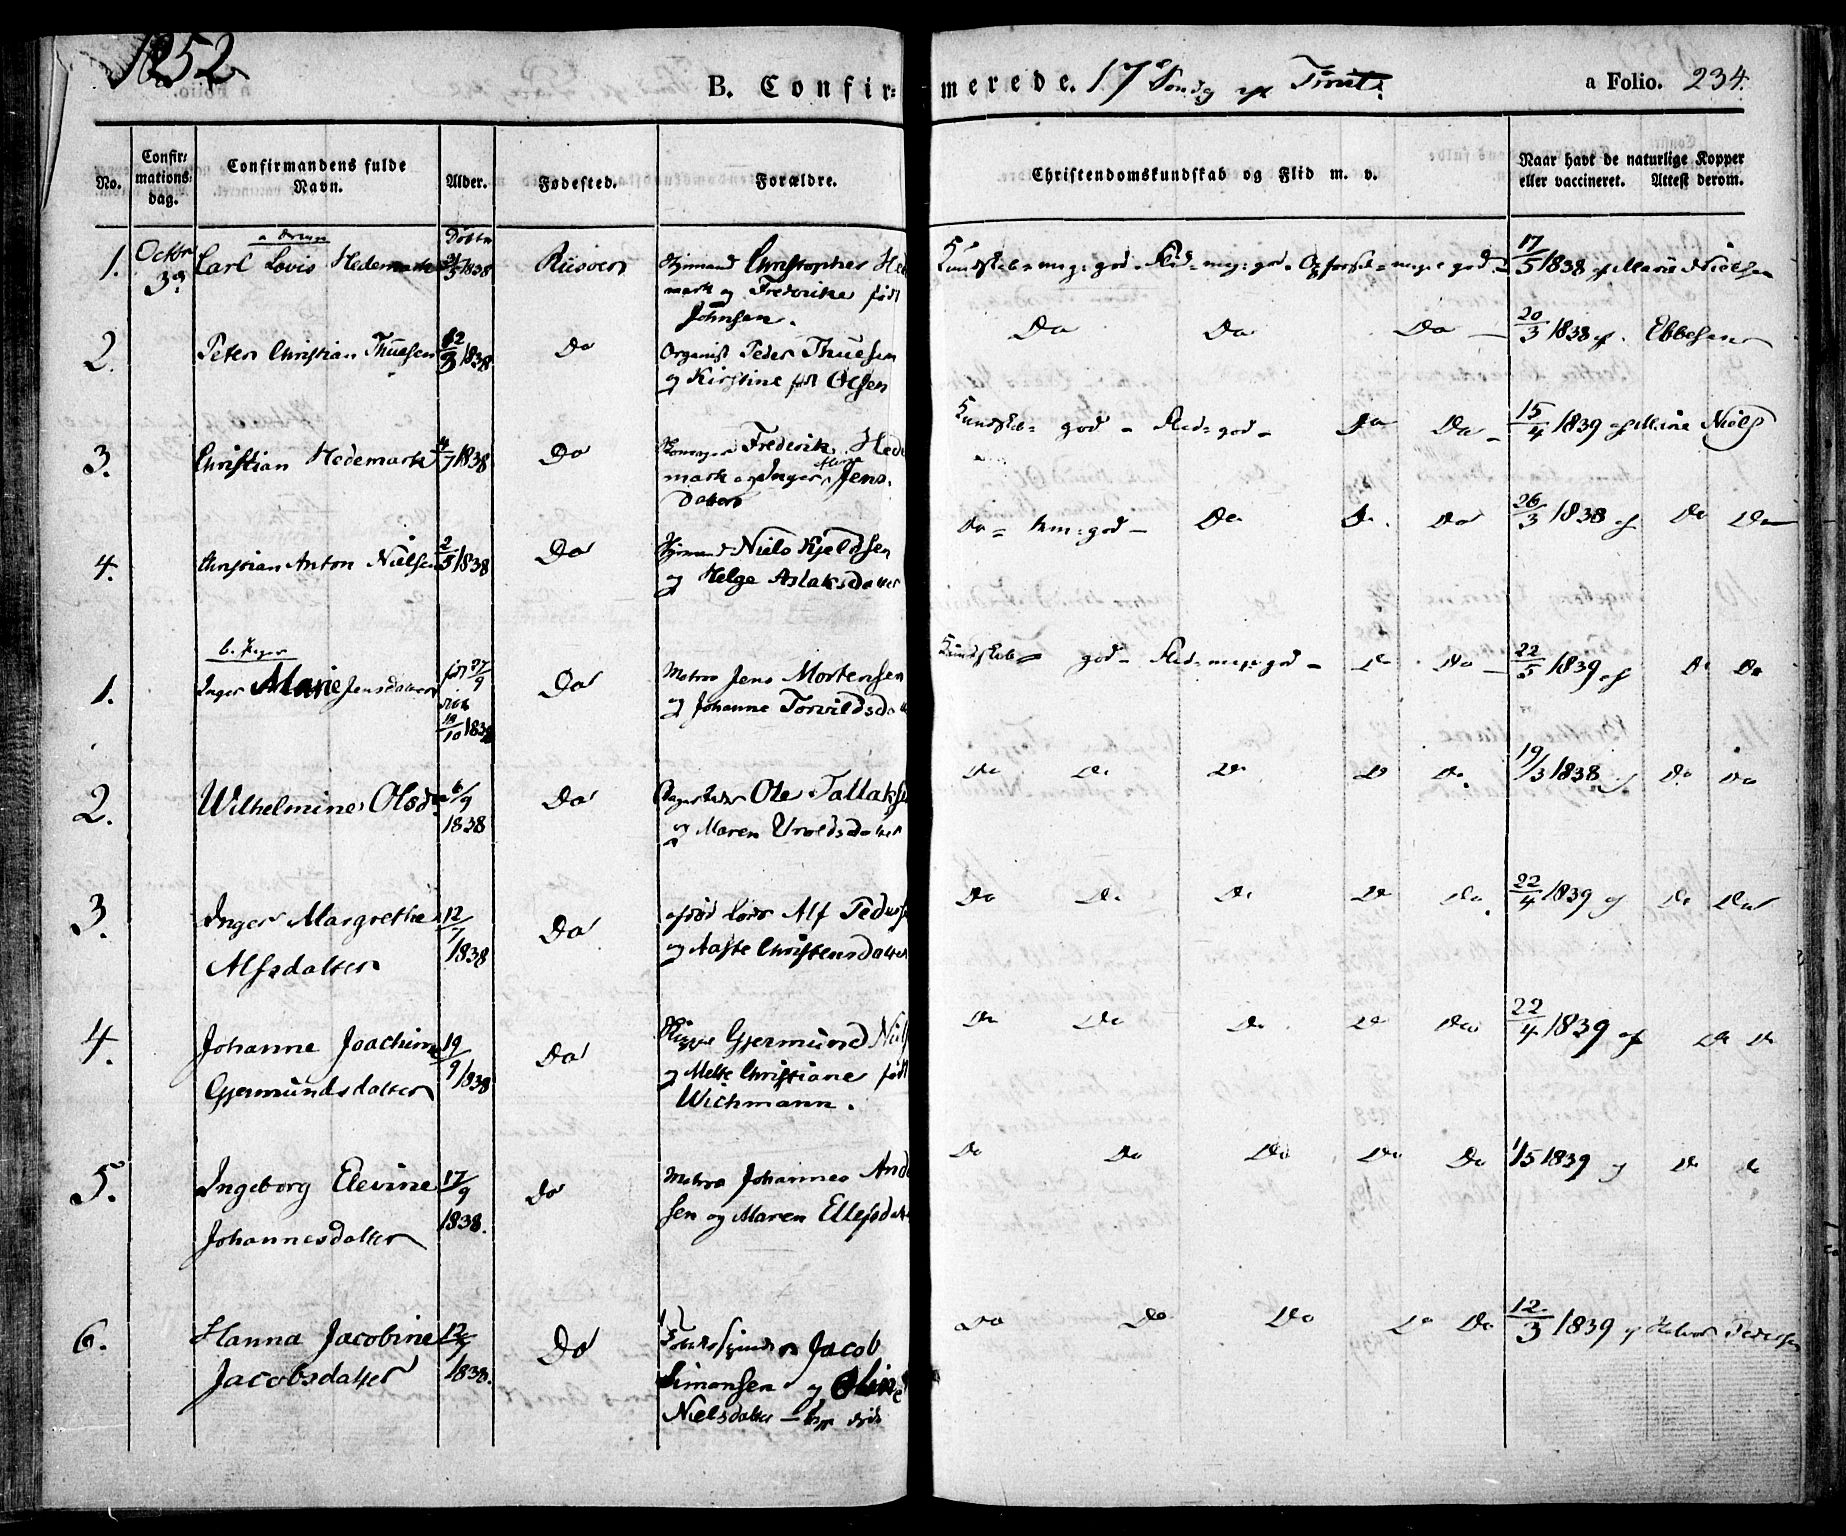 1852
B. Confirmerede. 17 Søndg Trinit:
a Folio. 234.
No.
Confirmationsdag.
Confirmandens fulde Navn.
Alder.
Fødested.
Forældre.
Christendomskundskab og Flid m. v.
Naar havt de naturlige Kopper eller vaccineret. Attest derom.
a Drenge
1. Octbr 3d Carl Lovis Hedemark 1838 Riisøer Christopher Hedemark og Frederike født Johnsen. Kundskab = meg: god - Flid = meg: god - Opførsel = meget god 17/5 1838 af Marie Nielsen
2. Peter Christian Thuesen 1838 Do Organist Peder Thuesen og Kirstine født Olsen Do Do Do 20/3 1838 af Ebbesen
3. Christian Hedemark 1838 Do Frederik Hedemark og Inger Jensdatter Kundskab god - Flid = god - Do Do 15/4 1839 af Marie Niels
4. Christian Anton Nielsen 2/5 1838 Do Niels Kjeldsen og Helge Aslaksdatter Do = god - Do Do Do 26/3 1838 af Do Do
b. Piger
1. Inger Marie Jensdatter 27/9 1838 Do Matros Jens Mortensen og Johanne Torvildsda Kundskab god - Flid = meget god - Do Do 22/5 1839 af Do Do
2. Wilhelmine Olsd. 6/9 1838 Do Ole Tallaks og Maren Do Do Do Do Do 19/3 1838 af Do Do
3. Inger Margrethe Alfsdatter 12/7 1838 Do Lods Alf Peders og Aaste Christensdatter Do Do Do Do Do 22/4 1839 af Do Do
4. Johanne Joachim Gjermundsdatter 19/9 1838 Do Gjermund Niels og Mette Christiane født Wichmann. Do Do Do Do Do 22/4 1839 af Do Do
5. Ingeborg Elevine Johannesdatter 17/9 1838. Do Matros Johannes Andersen og Maren Ellefsdat Do Do Do Do Do 1/5 1839 af Do Do
6. Hanna Jacobine Jacobsdatter 1838. Do Tobaksspinder Jacob Simonsen og Oline Nielsdatter Do Do Do Do Do 12/3 1839 af Pedersen